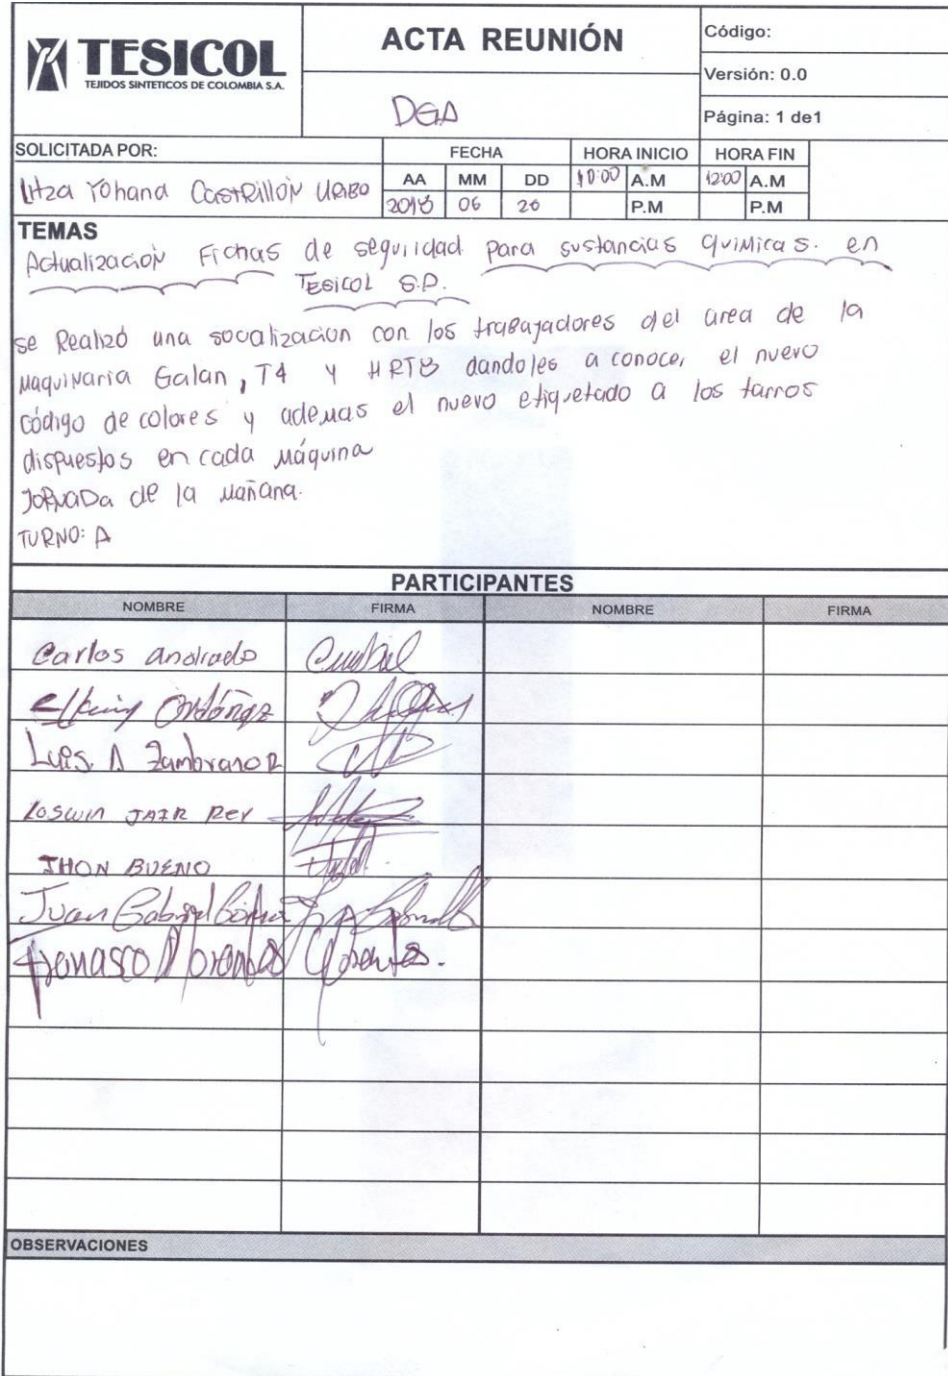 TESICOL
TEJIDOS SINTETICOS DE COLOMBIA S.A.
ACTA REUNIÓN
DGA
Código:
Versión: 0.0
Página: 1 de1
SOLICITADA POR:
FECHA
HORA INICIO
HORA FIN
Litza Yohana CastRillóN URiBe
AA MM DD
10:00 A.M
12:00 A.M
2018 06 26
P.M
P.M
TEMAS
Actualización Fichas de seguridad para sustancias químicas. en
TESICOL S.A.
se Realizó una socialización con los trabajadores del area de la
Maquinaria Galan, T4 y HRT8 dandoles a conocer el nuevo
código de colores y ademas el nuevo etiquetado a los tarros
dispuestos en cada máquina
JORNADa de la Mañana.
TURNO: A
PARTICIPANTES
NOMBRE FIRMA NOMBRE FIRMA
Carlos andrade
Elking Ordóñez
Luis. A Zambrano R
Loswin JAIR Rey
JHON BUENO
Juan Gabriel
OBSERVACIONES